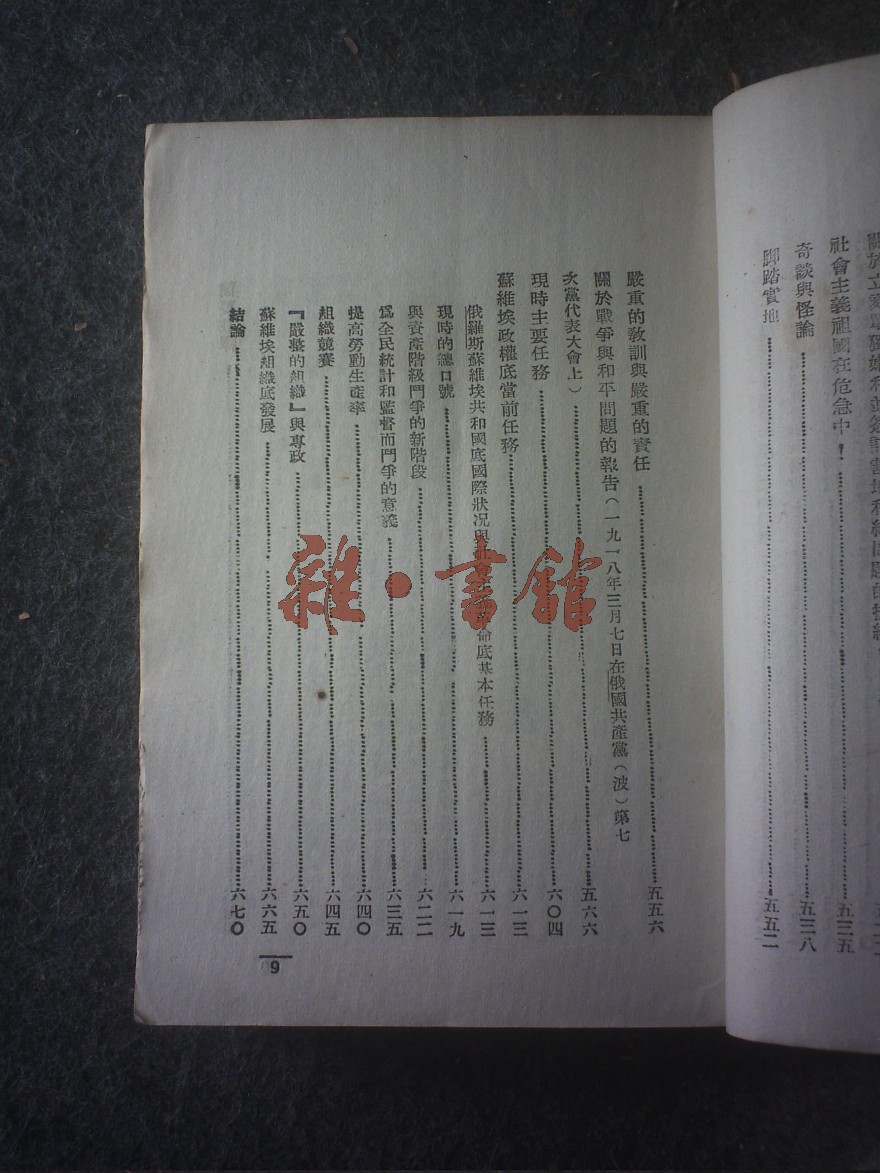 社會主義祖國在危急中……五三五
奇談與怪論……五三八
脚踏實地……五五二
嚴重的教訓與嚴重的責任……五五六
關於戰爭與和平問題的報告（一九一八年三月七日在俄國共產黨（波）第七
次黨代表大會上）……五六六
現時主要任務……六〇四
蘇維埃政權底當前任務……六一三
俄羅斯蘇維埃共和國底國際狀况與社會命底基本任務……六一三
現時的總口號……六一九
與資產階級鬥爭的新階段……六二二
爲全民統計和監督而鬥爭的意義……六三五
提高勞動生產率……六四〇
組織競賽……六四五
『嚴整的組織』與專政……六五〇
蘇維埃組織底發展……六六五
結論……六七〇
9
雜·書館